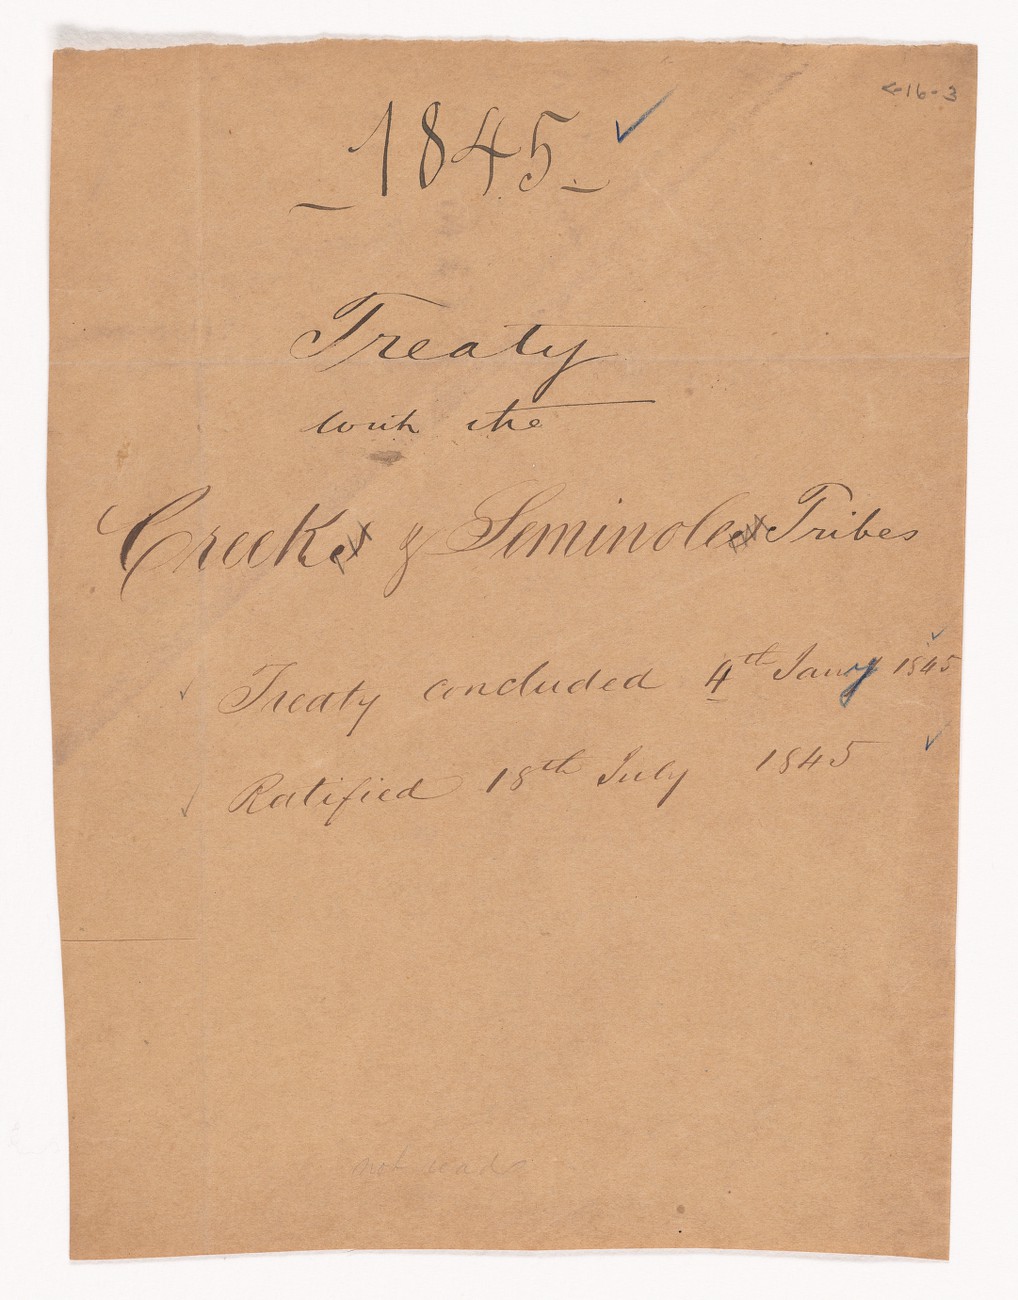 4-16-3
1845
Treaty
with the
Creek & Seminole Tribes
Treaty concluded 4th Jany 1845
Ratified 18th July 1845